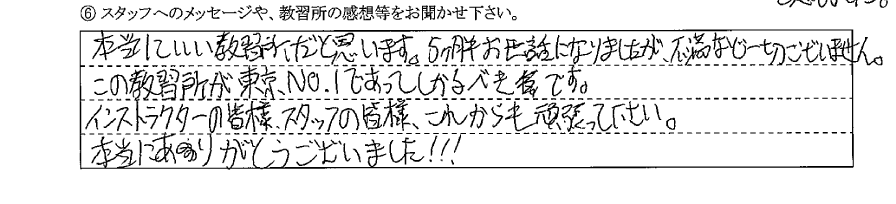 ⑥ スタッフへのメッセージや、教習所の感想等をお聞かせ下さい。
本当にいい教習所だと思います。5ヶ月半お世話になりましたが、不満など一切ございません。
この教習所が東京No.1であってしかるべき様です。
インストラクターの皆様、スタッフの皆様、これからも頑張って下さい。
本当にありがとうございました!!!